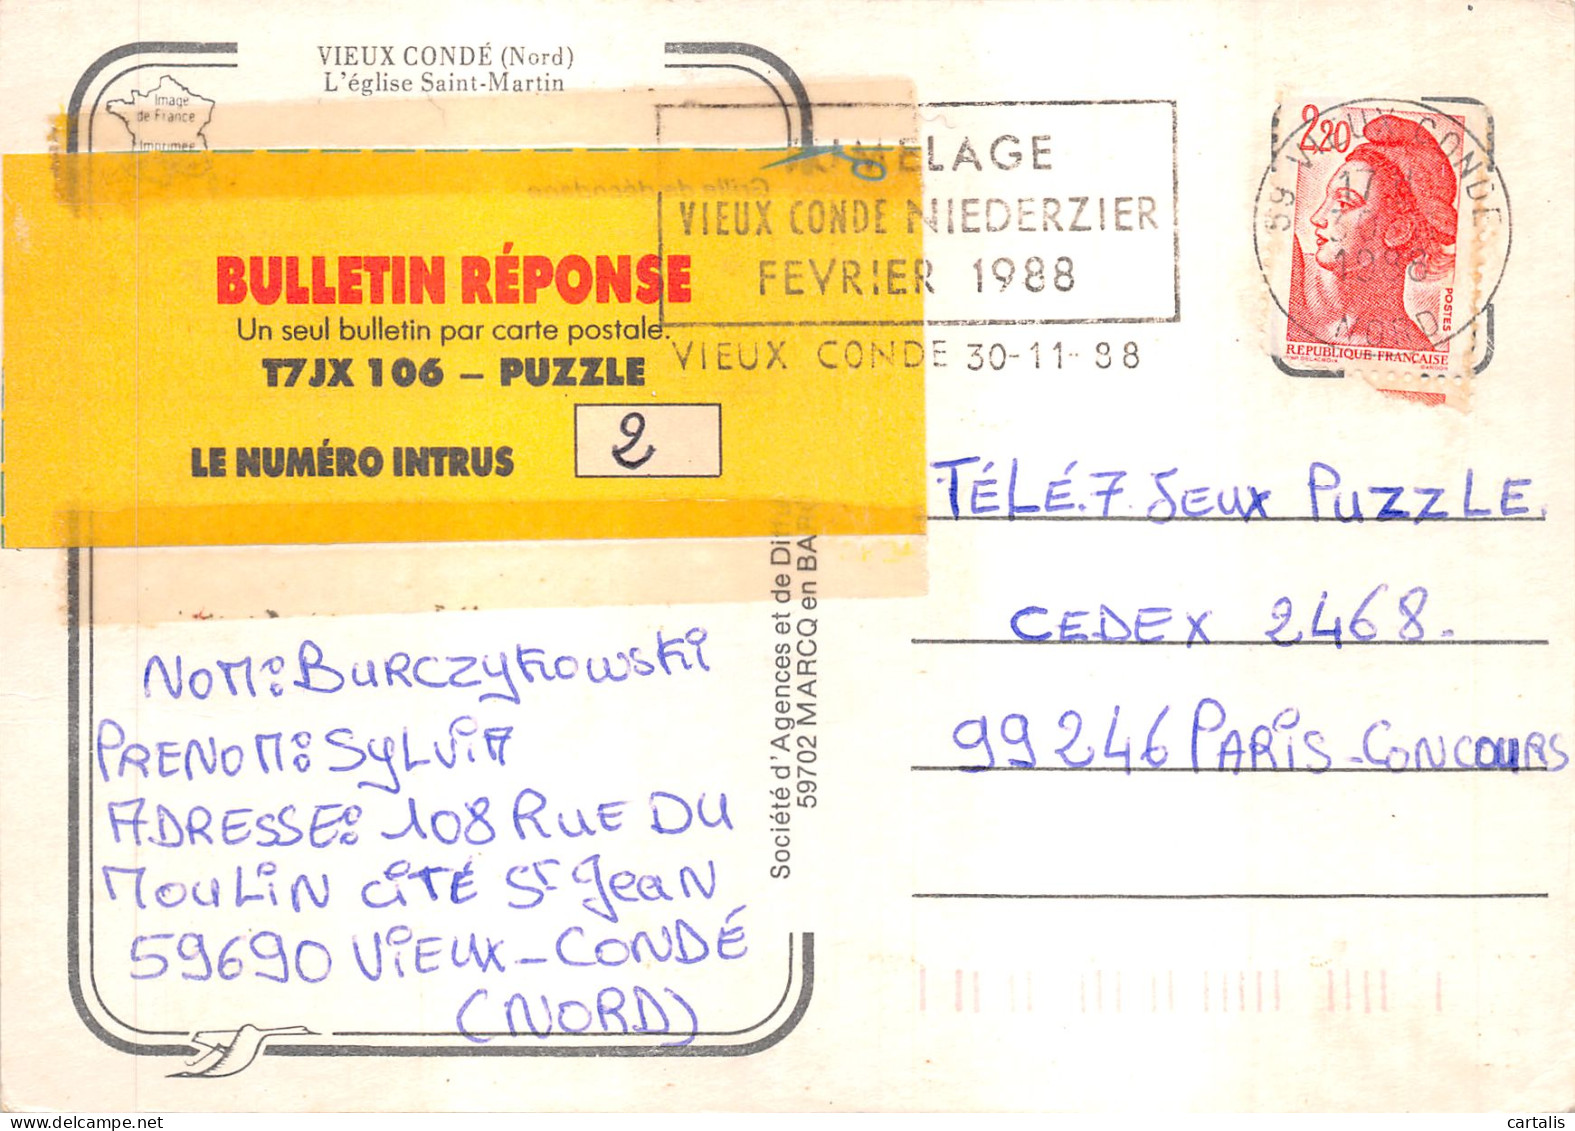 VIEUX CONDÉ (Nord)
L'église Saint-Martin
Image
de France
Imprimée
BULLETIN RÉPONSE
Un seul bulletin par carte postale.
T7JX 106 – PUZZLE
LE NUMÉRO INTRUS 2
VIEUX CONDE NIEDERZIER
FEVRIER 1988
VIEUX CONDE 30-11-88
2,20
POSTES
REPUBLIQUE·FRANCAISE
59 VIEUX CONDE
17
1988
NORD
TÉLÉ.7 JEUX PUZZLE.
CEDEX 2468.
99246 PARIS-CONCOURS
NOM: BURCZYKOWSKI
PRENOM: SYLVIA
ADRESSE: 108 RUE DU
MOULIN CITÉ ST JEAN
59690 VIEUX-CONDÉ
(NORD)
Société d'Agences et de
59702 MARCQ en
cartalis
www.delcampe.net